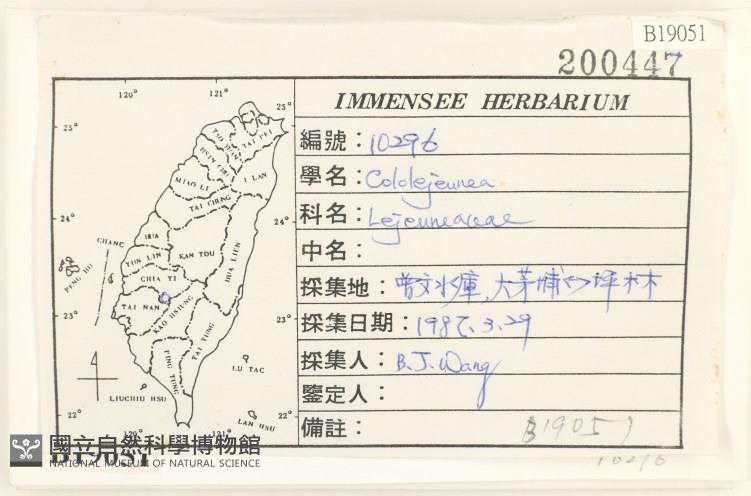 B19051
200447
IMMENSEE HERBARIUM
編號：10296
學名：Cololejeunea
科名：Lejeuneaceae
中名：
採集地：曾文水庫，大茅埔
採集日期：1987.3.29
採集人：B.J.Wang
鑒定人：
備註：B19051
120° 121°
25° 25°
TAI PEI
I LAN
MIAO LI
TAI CHUNG
24° 24°
CHANG HUA
YUN LIN
NAN TOU
HUA LIEN
PENG HU
CHIA YI
TAI NAN
KAO HSIUNG
23° 23°
TAI TUNG
PING TUNG
LU TAO
LIUCHIU HSU
LAN HSU
22° 22°
120° 121°
國立自然科學博物館
NATIONAL MUSEUM OF NATURAL SCIENCE